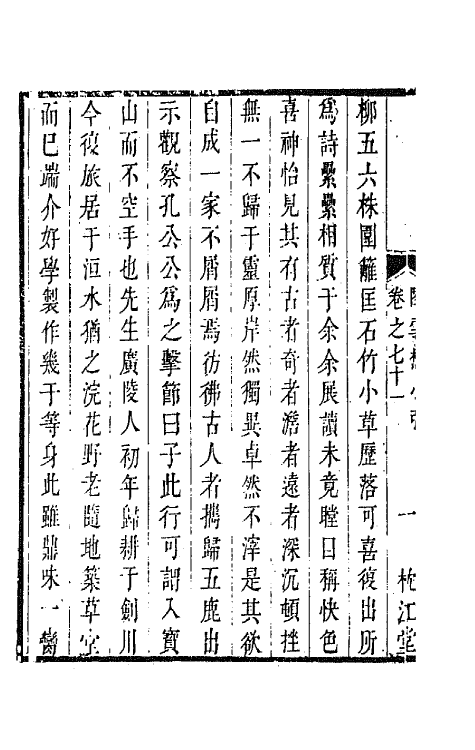 柳五六株圍籬匡石竹小草歷落可喜復出所
為詩纍纍相質于余余展讀未竟瞠目稱快色
喜神怡見其有古者奇者澹者遠者深沉頓挫
無一不歸于靈厚岸然獨異卓然不滓是其欲
自成一家不屑屑焉彷彿古人者攜歸五鹿出
示觀察孔公公為之擊節曰子此行可謂入寶
山而不空手也先生廣陵人初年歸耕于劍川
今復旅居于洹水猶之浣花野老隨地築草堂
而已端介好學製作幾于等身此雖鼎味一臠
卷之七十一
一
柁江堂